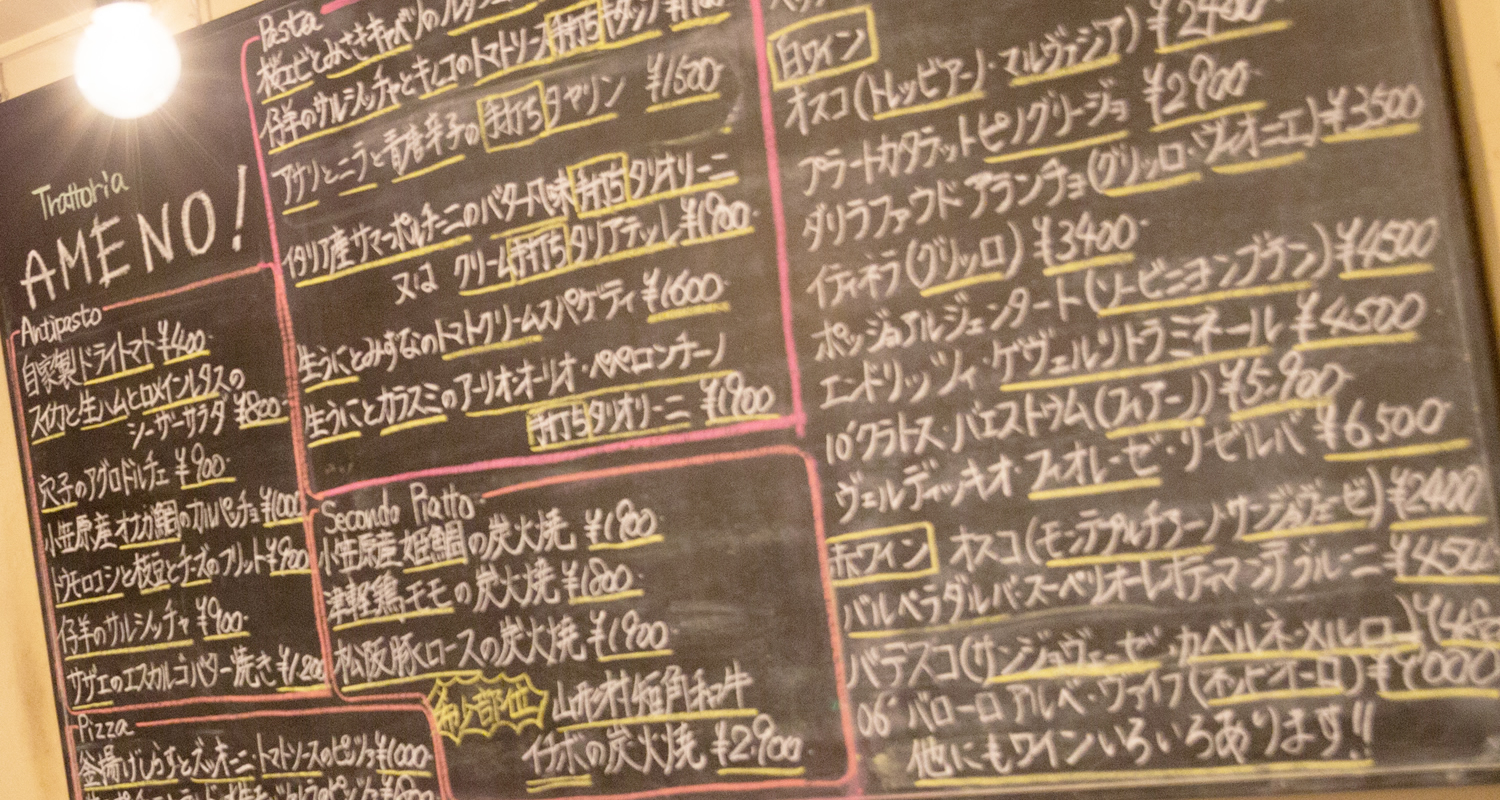 Trattoria
AMENO!
Antipasto
自家製ドライトマト ¥400
スイカと生ハムとロメインレタスの
シーザーサラダ ¥800
穴子のアグロドルチェ ¥900
小笠原産オナガ鯛のカルパッチョ ¥1000
トウモロコシと枝豆とチーズのフリット ¥900
仔羊のサルシッチャ ¥900
サザエのエスカルゴバター焼き ¥1200
Pizza
釜揚げしらすとズッキーニ・トマトソースのピッツァ ¥1000
Pasta
桜エビとみさきキャベツの
仔羊のサルシッチャとキノコのトマトソース手打ちキタッラ
アサリとニラと青唐辛子の手打ちタヤリン ¥1500
イタリア産サマーポルチーニのバター風味手打ちタリオリーニ
又は クリーム手打ちタリアテッレ ¥1900
生うにとみずなのトマトクリームスパゲティ ¥1600
生うにとカラスミのアーリオ・オーリオ・ペペロンチーノ
手打ちタリオリーニ ¥1900
Secondo Piatto
小笠原産姫鯛の炭火焼 ¥1900
津軽鶏モモの炭火焼 ¥1800
松阪豚ロースの炭火焼 ¥1900
希少部位 山形村短角和牛
イチボの炭火焼 ¥2.900
白ワイン
オスコ(トレッビアーノ・マルヴァジア) ¥2400
アラートカタラットピノグリージョ ¥2900
ダリラファウド アランチョ(グリッロ・ヴィオニエ) ¥3500
イティネラ(グリッロ) ¥3400
ポッジョアルジェンタート(ソービニヨンブラン) ¥4500
エンドリッツィ・ゲヴェルツトラミネール ¥4500
10'クラトス・パエストゥム(フィアーノ) ¥5.900
ヴェルディッキオ・フィオレーゼ・リゼルバ ¥6500
赤ワイン オスコ(モンテプルチアーノ サンジョヴェーゼ) ¥2400
バルベラダルバ・スーペリオーレ
バデスコ(サンジョヴェーゼ・カベルネ・メルロー)
06' バローロ アルベ・ヴァイラ(ネッビオーロ)
他にもワインいろいろあります!!